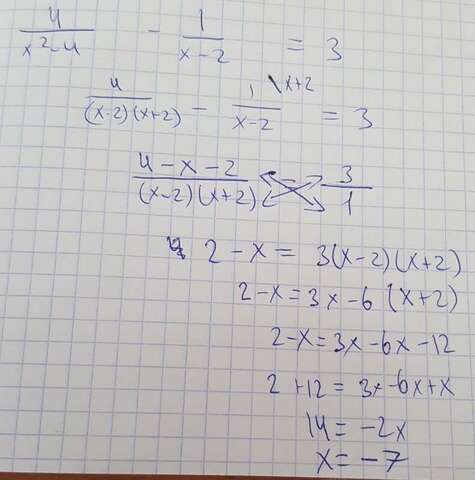 4/(x²-4) - 1/(x-2) = 3
4/((x-2)(x+2)) - 1\x+2/(x-2) = 3
(4-x-2)/((x-2)(x+2)) = 3/1
2-x = 3(x-2)(x+2)
2-x = 3x-6 (x+2)
2-x = 3x-6x-12
2+12 = 3x-6x+x
14 = -2x
x = -7